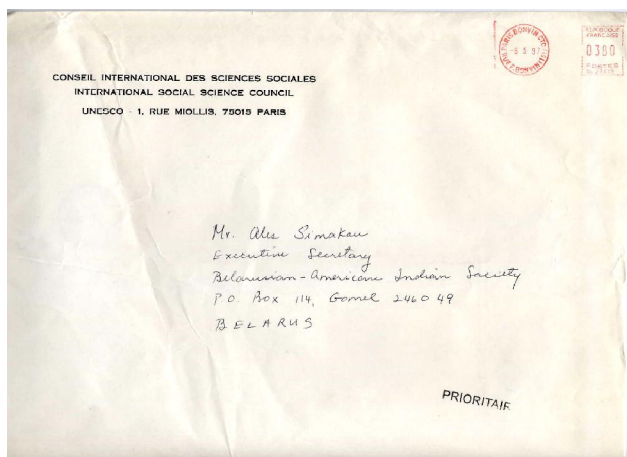 CONSEIL INTERNATIONAL DES SCIENCES SOCIALES
INTERNATIONAL SOCIAL SCIENCE COUNCIL
UNESCO - 1, RUE MIOLLIS, 75015 PARIS
REPUBLIQUE
FRANCAISE
0380
POSTES
Mr. Ales Simakou
Executive Secretary
Belarusian-American Indian Society
P.O. Box 114, Gomel 246049
BELARUS
PRIORITAIR